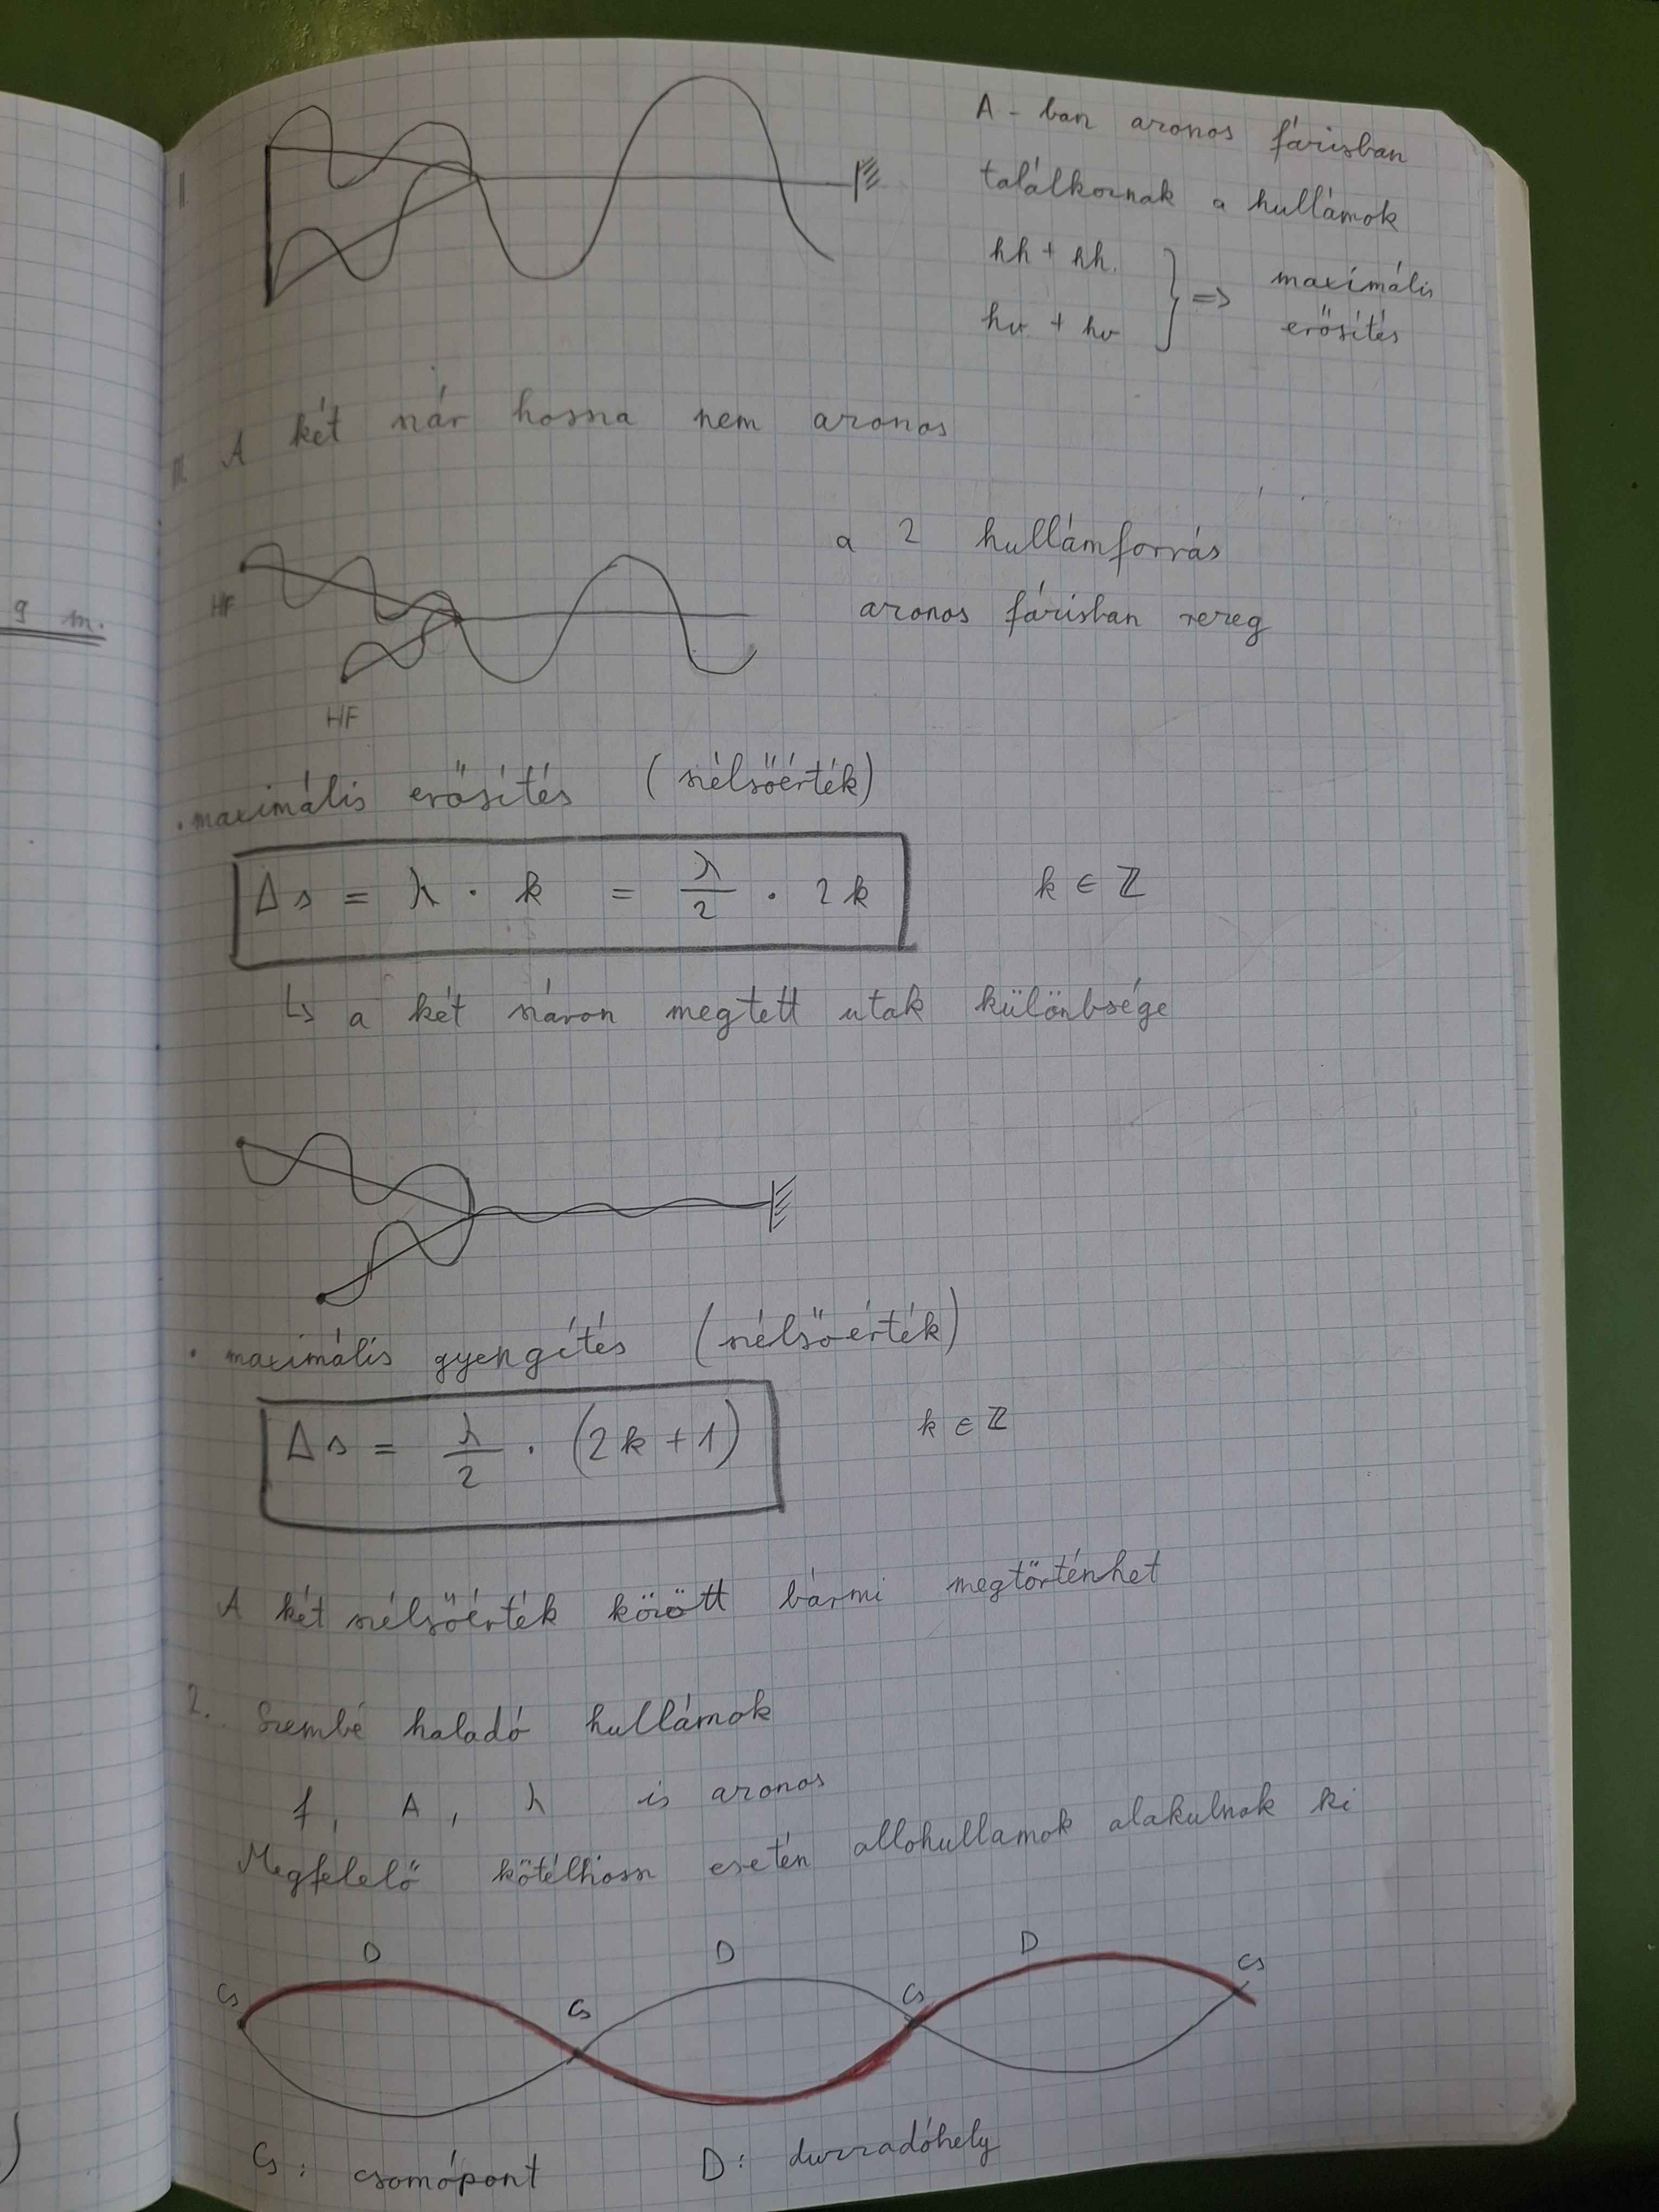 I.
A-ban azonos fázisban
találkoznak a hullámok
hh + hh.
hv. + hv
} => maximális
erősítés
II. A két szár hossza nem azonos
a 2 hullámforrás
azonos fázisban rezeg
HF
HF
g m.
• maximális erősítés (szélsőérték)
Δs = λ · k = λ/2 · 2k k ∈ ℤ
↳ a két száron megtett utak különbsége
• maximális gyengítés (szélsőérték)
Δs = λ/2 · (2k + 1) k ∈ ℤ
A két szélsőérték között bármi megtörténhet
2. Szembé haladó hullámok
f, A, λ is azonos
Megfelelő kötélhossz esetén allohullamok alakulnak ki
D D D
Cs Cs Cs Cs
Cs: csomópont D: duzzadóhely